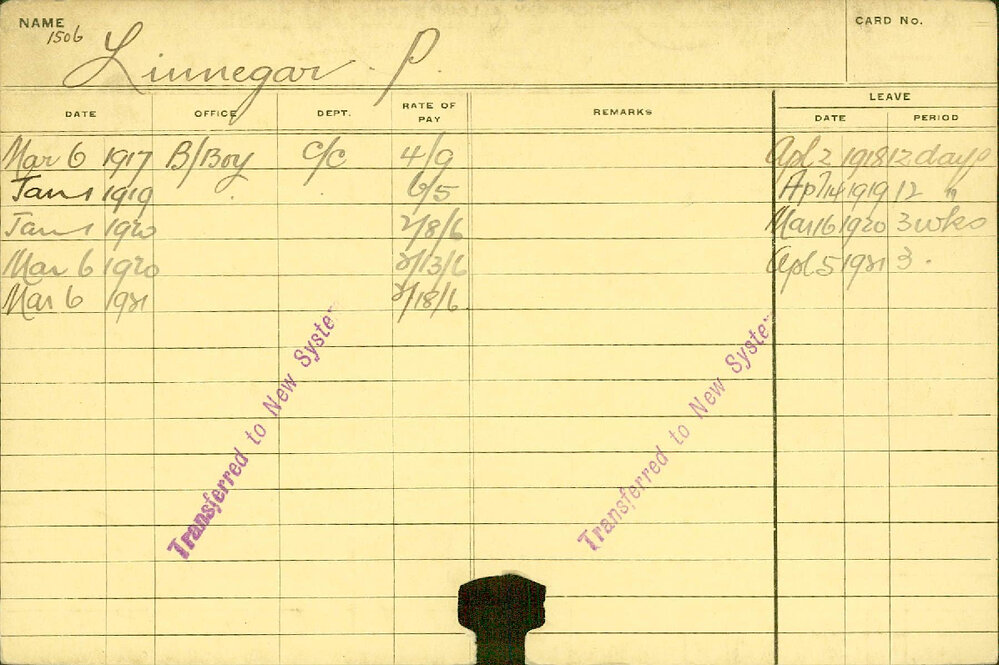 NAME CARD No.
1506
Linnegar P.
LEAVE
DATE OFFICE DEPT. RATE OF PAY REMARKS DATE PERIOD
Mar 6 1917 B/Boy C/C 4/9 Apl 2 1918 12 days
Jan 1 1919 6/5 Apl 14 1919 12 "
Jan 1 1920 /8/6 Mar 16 1920 3 wks
Mar 6 1920 /13/6 Apl 5 1921 3 .
Mar 6 1921 /18/6.
Transferred to New Syste
Transferred to New Syste